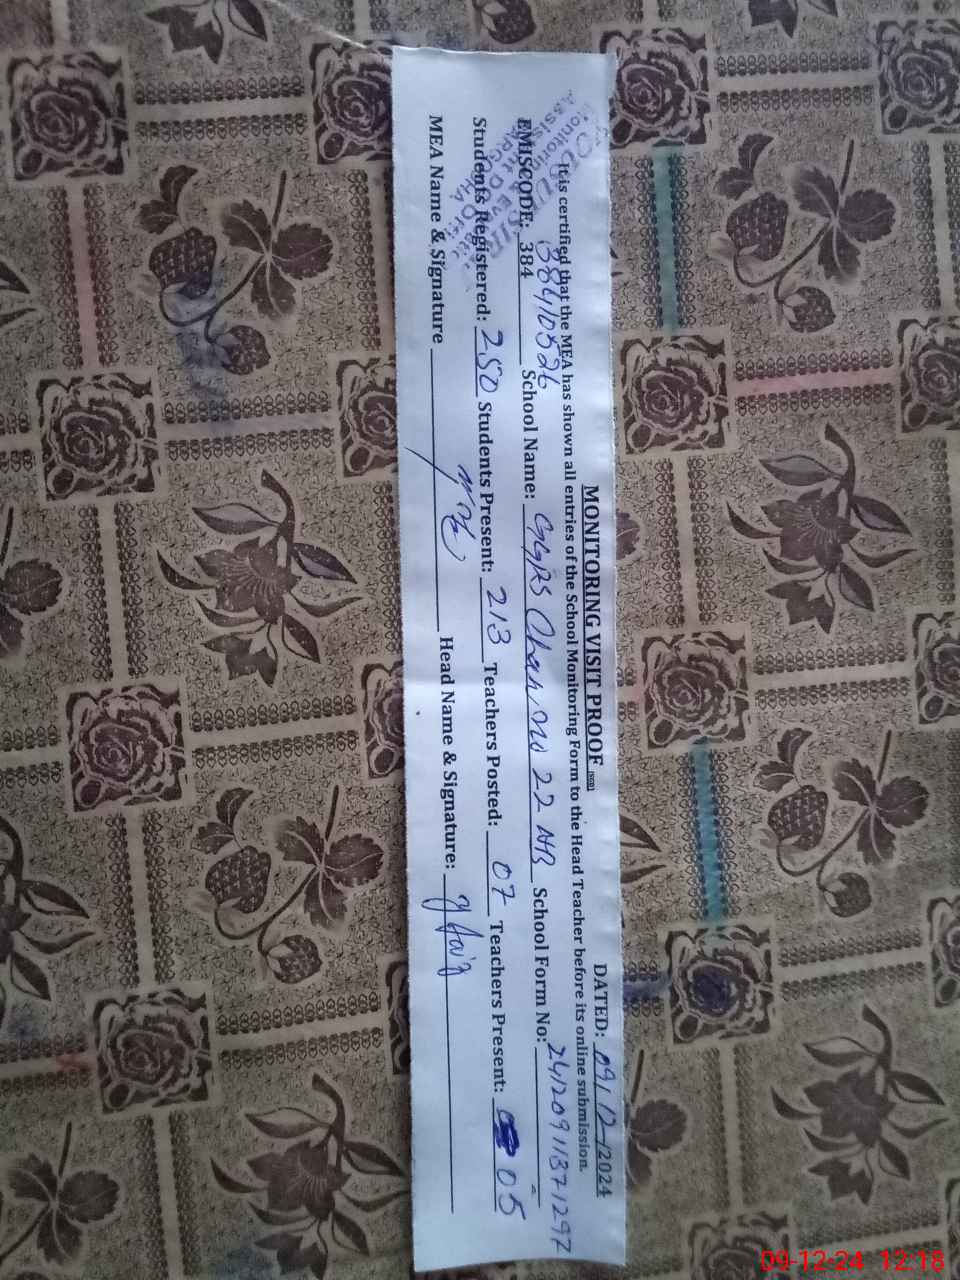 MONITORING VISIT PROOF
DATED: 09/12/2024
It is certified that the MEA has shown all entries of the School Monitoring Form to the Head Teacher before its online submission.
EMISCODE: 384 38410526 School Name: GGPS Chak no 22 NB School Form No: 24120911871297
Students Registered: 250 Students Present: 213 Teachers Posted: 07 Teachers Present: 05
MEA Name & Signature Head Name & Signature:
Monitoring & Eva
Assistant D
SARGODHA
09-12-24 12:18